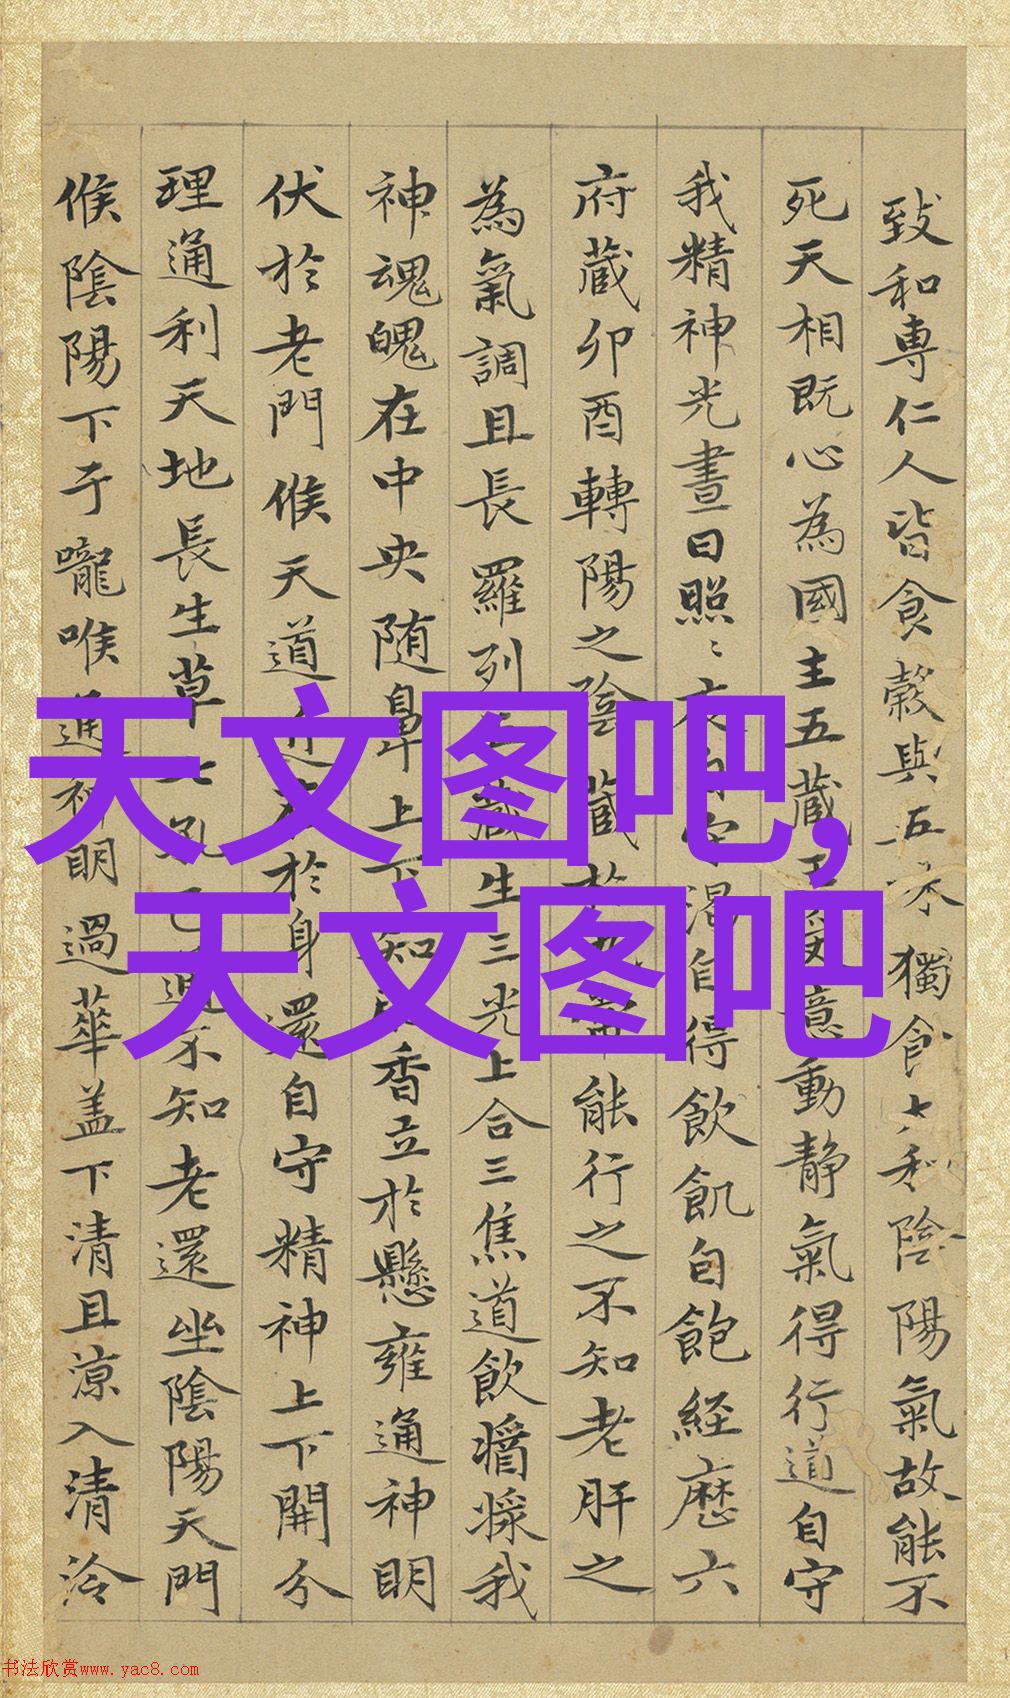 致和專仁人皆食穀與五味獨食大和陰陽氣故能不
死天相既心為國主五藏王意動靜氣得行道自守
我精神光晝日照〻夜自守渴自得飲飢自飽經歷六
府藏卯酉轉陽之陰藏於九常能行之不知老肝之
為氣調且長羅列五藏生三光上合三焦道飲醬漿我
神魂魄在中央随鼻上下知肥香立於懸雍通神明
伏於老門候天道近在於身還自守精神上下開分
理通利天地長生草七孔已通不知老還坐陰陽天門
候陰陽下于嚨喉通神明過華盖下清且涼入清泠
天文图吧,
天文图吧
书法欣赏www.yac8.com